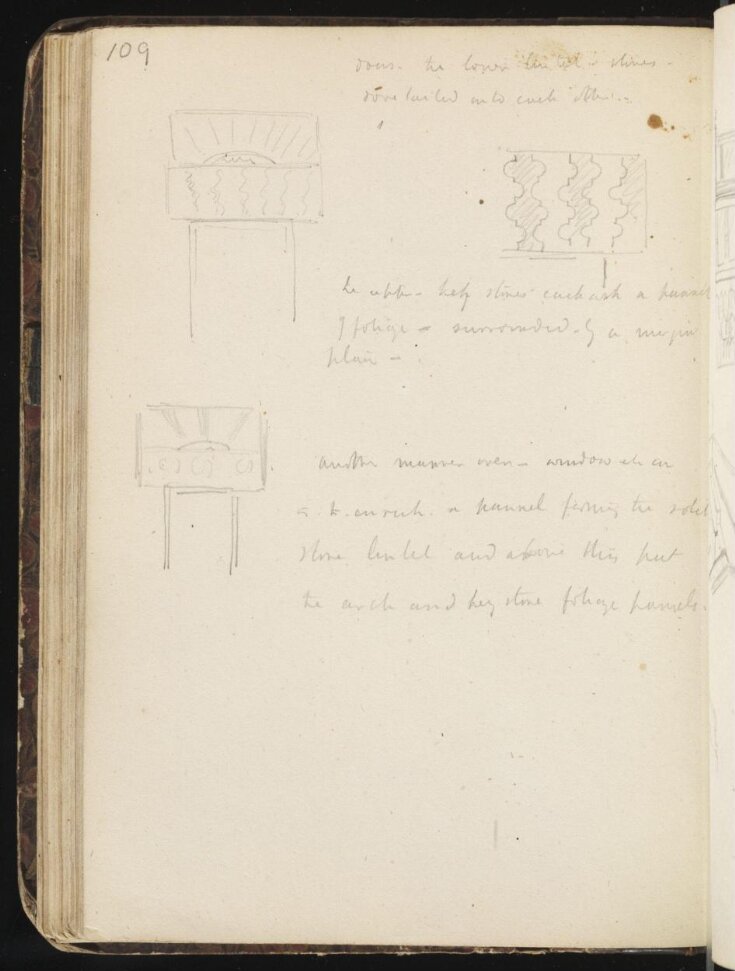 109
doors. the lower lintel - stones -
dovetailed into each other -
the upper - key stones each with a pannel
of foliage - surrounded by a margin
plain -
another manner over - window
is to enrich a pannel forming the solid
stone lintel and above this put
the arch and key stone foliage pannels.